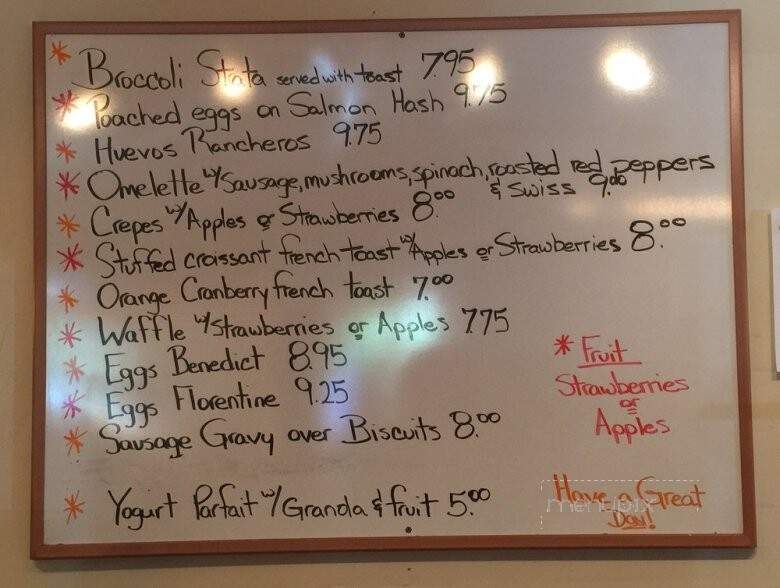 * Broccoli Strata served with toast 7.95
* Poached eggs on Salmon Hash 9.75
* Huevos Rancheros 9.75
* Omelette w/Sausage, mushrooms, spinach, roasted red peppers
& Swiss 9.00
* Crepes w/Apples or Strawberries 8.00
* Stuffed croissant french toast w/Apples or Strawberries 8.00
* Orange Cranberry french toast 7.00
* Waffle w/strawberries or Apples 775
* Eggs Benedict 8.95
* Eggs Florentine 9.25
* Sausage Gravy over Biscuits 8.00
* Yogurt Parfait w/Granola & fruit 5.00
* Fruit
Strawberries
or
Apples
Have a Great
Day!
menupix